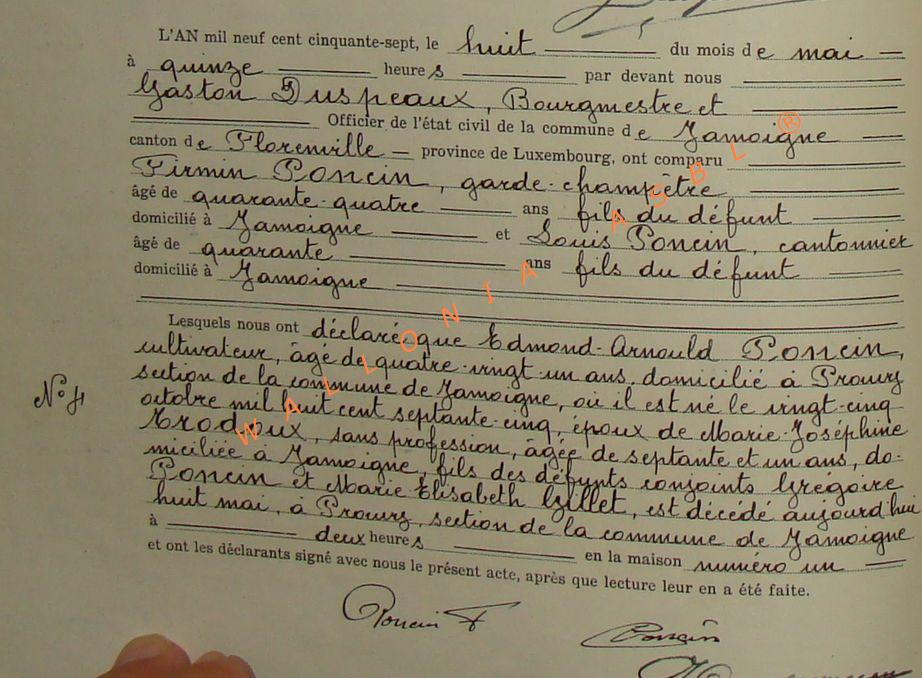 L'AN mil neuf cent cinquante-sept, le huit du mois de mai
à quinze heures par devant nous
Gaston Duspeaux, Bourgmestre et
Officier de l'état civil de la commune de Jamoigne
canton de Florenville province de Luxembourg, ont comparu
Firmin Poncin, garde-champêtre
âgé de quarante-quatre ans fils du défunt
domicilié à Jamoigne et Louis Poncin, cantonnier
âgé de quarante ans fils du défunt
domicilié à Jamoigne
Lesquels nous ont déclaré que Edmond-Arnould Poncin,
cultivateur, âgé de quatre-vingt-un ans, domicilié à Prouvy
section de la commune de Jamoigne, où il est né le vingt-cinq
N° 4
octobre mil huit cent septante-cinq, époux de Marie-Joséphine
Trodoux, sans profession, âgée de septante et un ans, do-
miciliée à Jamoigne, fils des défunts conjoints Grégoire
Poncin et Marie Elisabeth Gillet, est décédé aujourd'hui
huit mai, à Prouvy, section de la commune de Jamoigne
à deux heures en la maison numéro un
et ont les déclarants signé avec nous le présent acte, après que lecture leur en a été faite.
Poncin F
Poncin
WALLONIA ASBL ®